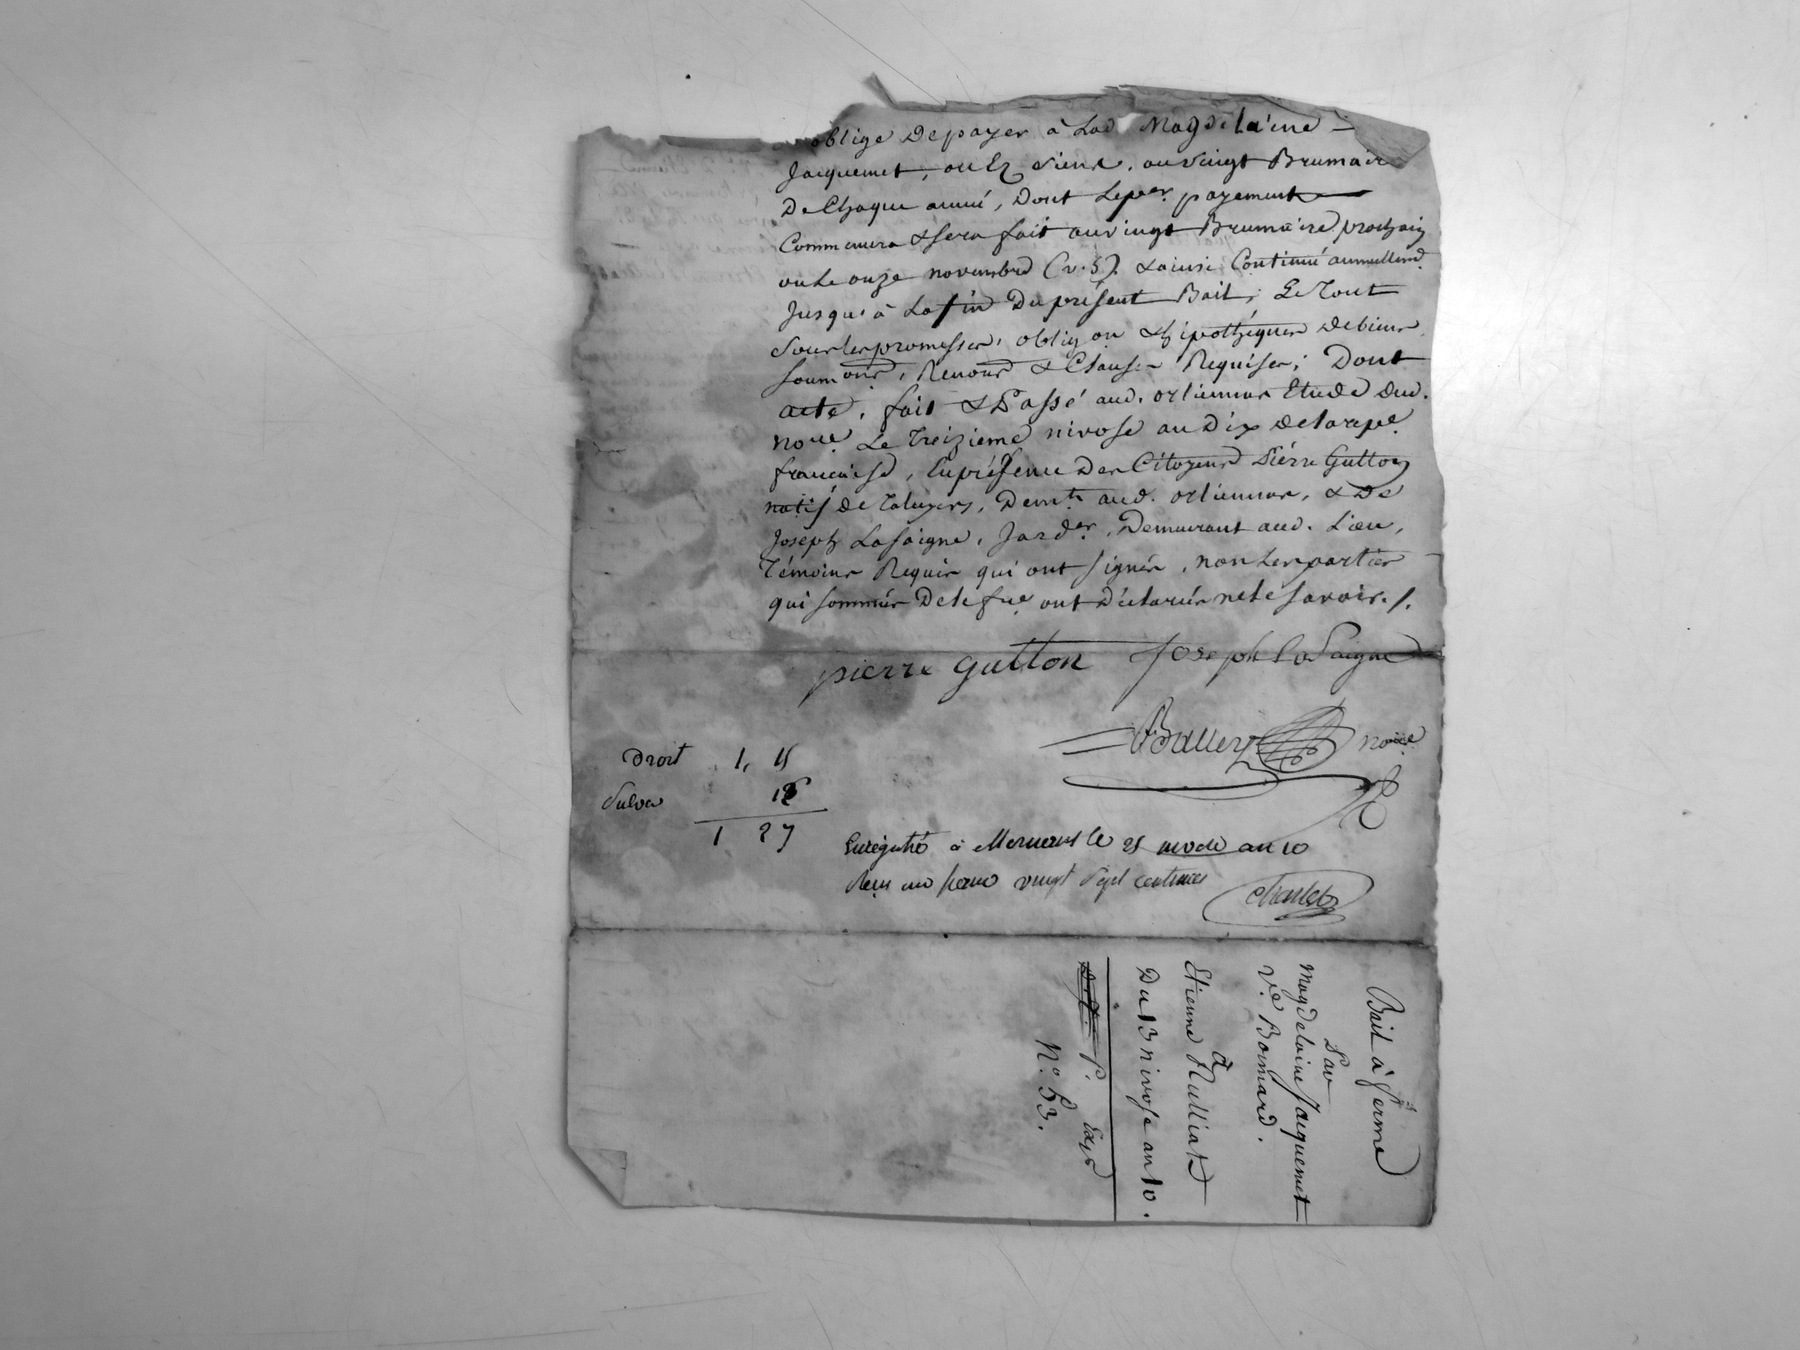 oblige de payer à Lad. Magdelaine
Jacquemet, ou Ez siens, au vingt Brumaire
De Chaque année, Dont Le per. payement
Commencera & sera fait au vingt Brumaire prochain
ou Le onze novembre (v. S.) & ainsi Continué annuellemt.
Jusqu'à La fin Du présent Bail; Le Tout
sous les promesses, obligon & hipothéques de biens
soumons, Renons & Clauses Requises; Dont
acte, fait & Passé aud. orliennas Etude dud.
nore Le Treizieme nivose an Dix de la repe.
francaise, En présence Des Citoyens Piérre Gutton
natif de Taluyers, Demt. aud. orliennas, & De
Joseph Lasaigne, Jarder. Demeurant aud. Lieu,
Témoins Requis qui ont signés, non Les parties
qui sommés De le fre. ont Déclarés ne le savoir./.
pierre gutton Joseph la Saigne
nore
Droit 1, 15
1 27
Enregistré à Mornant le 21 nivose an 10
Reçu un franc vingt sept centimes
Bail à ferme
Par
Magdelaine Jacquemet
Ve. Bonnard.
à
Etienne Rulliat
Du 13 nivose an 10.
P. Exp
N°. 53.